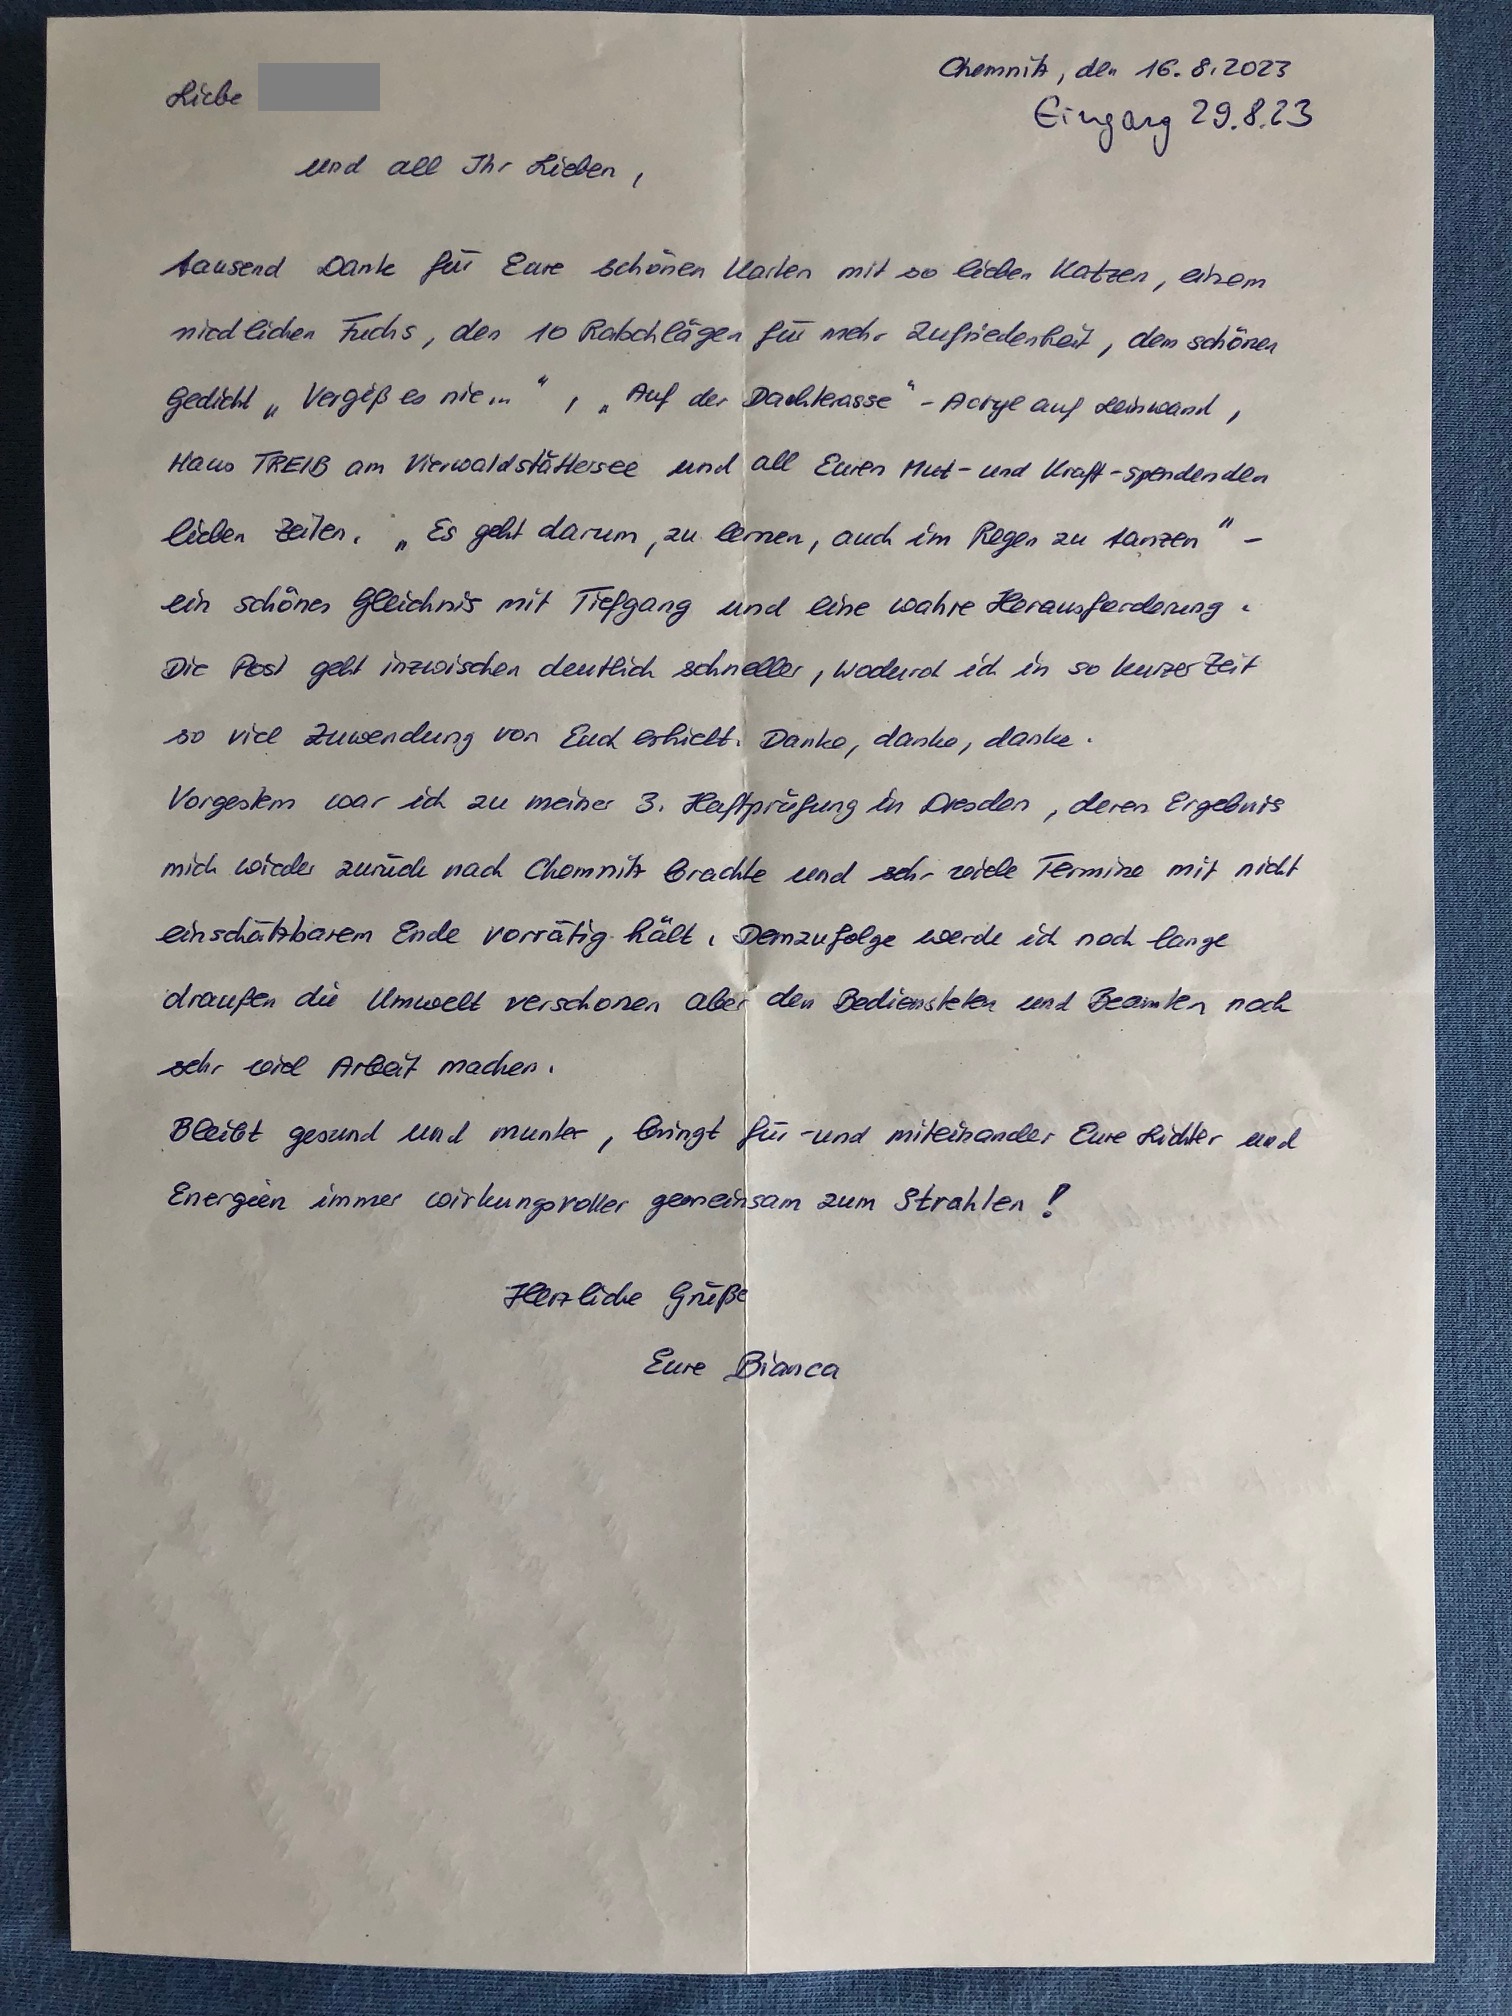 Chemnitz, den 16.8.2023
Eingang 29.8.23
Liebe
und all Ihr Lieben,
tausend Dank für Eure schönen Karten mit so lieben Katzen, einem
niedlichen Fuchs, den 10 Ratschlägen für mehr Zufriedenheit, dem schönen
Gedicht „Vergiß es nie..." , „Auf der Dachterasse" - Acryl auf Leinwand,
Haus TREIB am Vierwaldstättersee und all Euren Mut- und Kraft-spendenden
lieben Zeilen. „Es geht darum, zu lernen, auch im Regen zu tanzen" -
ein schönes Gleichnis mit Tiefgang und eine wahre Herausforderung.
Die Post geht inzwischen deutlich schneller, wodurch ich in so kurzer Zeit
so viel Zuwendung von Euch erhielt. Danke, danke, danke.
Vorgestern war ich zu meiner 3. Haftprüfung in Dresden, deren Ergebnis
mich wieder zurück nach Chemnitz brachte und sehr viele Termine mit nicht
einschätzbarem Ende vorrätig hält. Demzufolge werde ich noch lange
draußen die Umwelt verschonen aber den Bediensteten und Beamten noch
sehr viel Arbeit machen.
Bleibt gesund und munter, bringt für- und miteinander Eure Lichter und
Energien immer wirkungsvoller gemeinsam zum Strahlen!
Herzliche Grüße
Eure Bianca